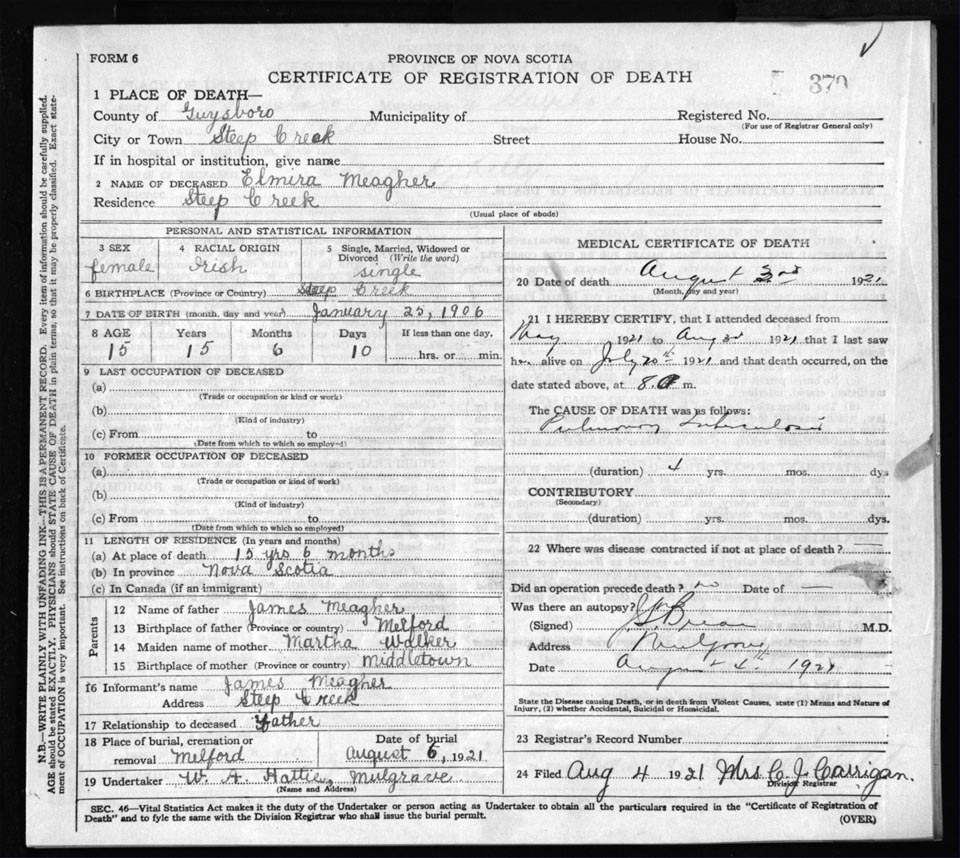 FORM 6
PROVINCE OF NOVA SCOTIA
CERTIFICATE OF REGISTRATION OF DEATH
370
1 PLACE OF DEATH—
County of Guysboro Municipality of Registered No.
(For use of Registrar General only)
City or Town Steep Creek Street House No.
If in hospital or institution, give name
2 NAME OF DECEASED Elmira Meagher
Residence Steep Creek
(Usual place of abode)
PERSONAL AND STATISTICAL INFORMATION
3 SEX 4 RACIAL ORIGIN 5 Single, Married, Widowed or
Divorced (Write the word)
female Irish single
6 BIRTHPLACE (Province or Country) Steep Creek
7 DATE OF BIRTH (month, day and year) January 23, 1906
8 AGE Years Months Days If less than one day,
15 15 6 10 hrs. or min.
9 LAST OCCUPATION OF DECEASED
(a)
(Trade or occupation or kind or work)
(b)
(Kind of industry)
(c) From to
(Date from which to which so employed)
10 FORMER OCCUPATION OF DECEASED
(a)
(Trade or occupation or kind of work)
(b)
(Kind of industry)
(c) From to
(Date from which to which so employed)
11 LENGTH OF RESIDENCE (In years and months)
(a) At place of death 15 yrs 6 months
(b) In province Nova Scotia
(c) In Canada (if an immigrant)
Parents
12 Name of father James Meagher
13 Birthplace of father (Province or country) Melford
14 Maiden name of mother Martha Walker
15 Birthplace of mother (Province or country) Middletown
16 Informant's name James Meagher
Address Steep Creek
17 Relationship to deceased Father
18 Place of burial, cremation or Date of burial
removal Melford August 6, 1921
19 Undertaker W. A. Hattie, Mulgrave
(Name and Address)
MEDICAL CERTIFICATE OF DEATH
20 Date of death August 3rd 1921
(Month, day and year)
21 I HEREBY CERTIFY, that I attended deceased from
May 1921 to Aug 3d 1921 that I last saw
her alive on July 20th 1921 and that death occurred, on the
date stated above, at 8 m.
The CAUSE OF DEATH was as follows:
Pulmonary tuberculosis
(duration) 4 yrs. mos. dys
CONTRIBUTORY
(Secondary)
(duration) yrs. mos. dys.
22 Where was disease contracted if not at place of death?
Did an operation precede death? no Date of —
Was there an autopsy?
(Signed) M.D.
Address Mulgrave
Date August 4th 1921
State the Disease causing Death, or in death from Violent Causes, state (1) Means and Nature of
Injury, (2) whether Accidental, Suicidal or Homicidal.
23 Registrar's Record Number
24 Filed Aug 4 1921 Mrs. C. J. Carrigan.
Division Registrar
SEC. 46—Vital Statistics Act makes it the duty of the Undertaker or person acting as Undertaker to obtain all the particulars required in the "Certificate of Registration of
Death" and to fyle the same with the Division Registrar who shall issue the burial permit.
(OVER)
N.B.—WRITE PLAINLY WITH UNFADING INK—THIS IS A PERMANENT RECORD. Every item of information should be carefully supplied.
AGE should be stated EXACTLY. PHYSICIANS should STATE CAUSE OF DEATH in plain terms, so that it may be properly classified. Exact state-
ment of OCCUPATION is very important. See instructions on back of Certificate.